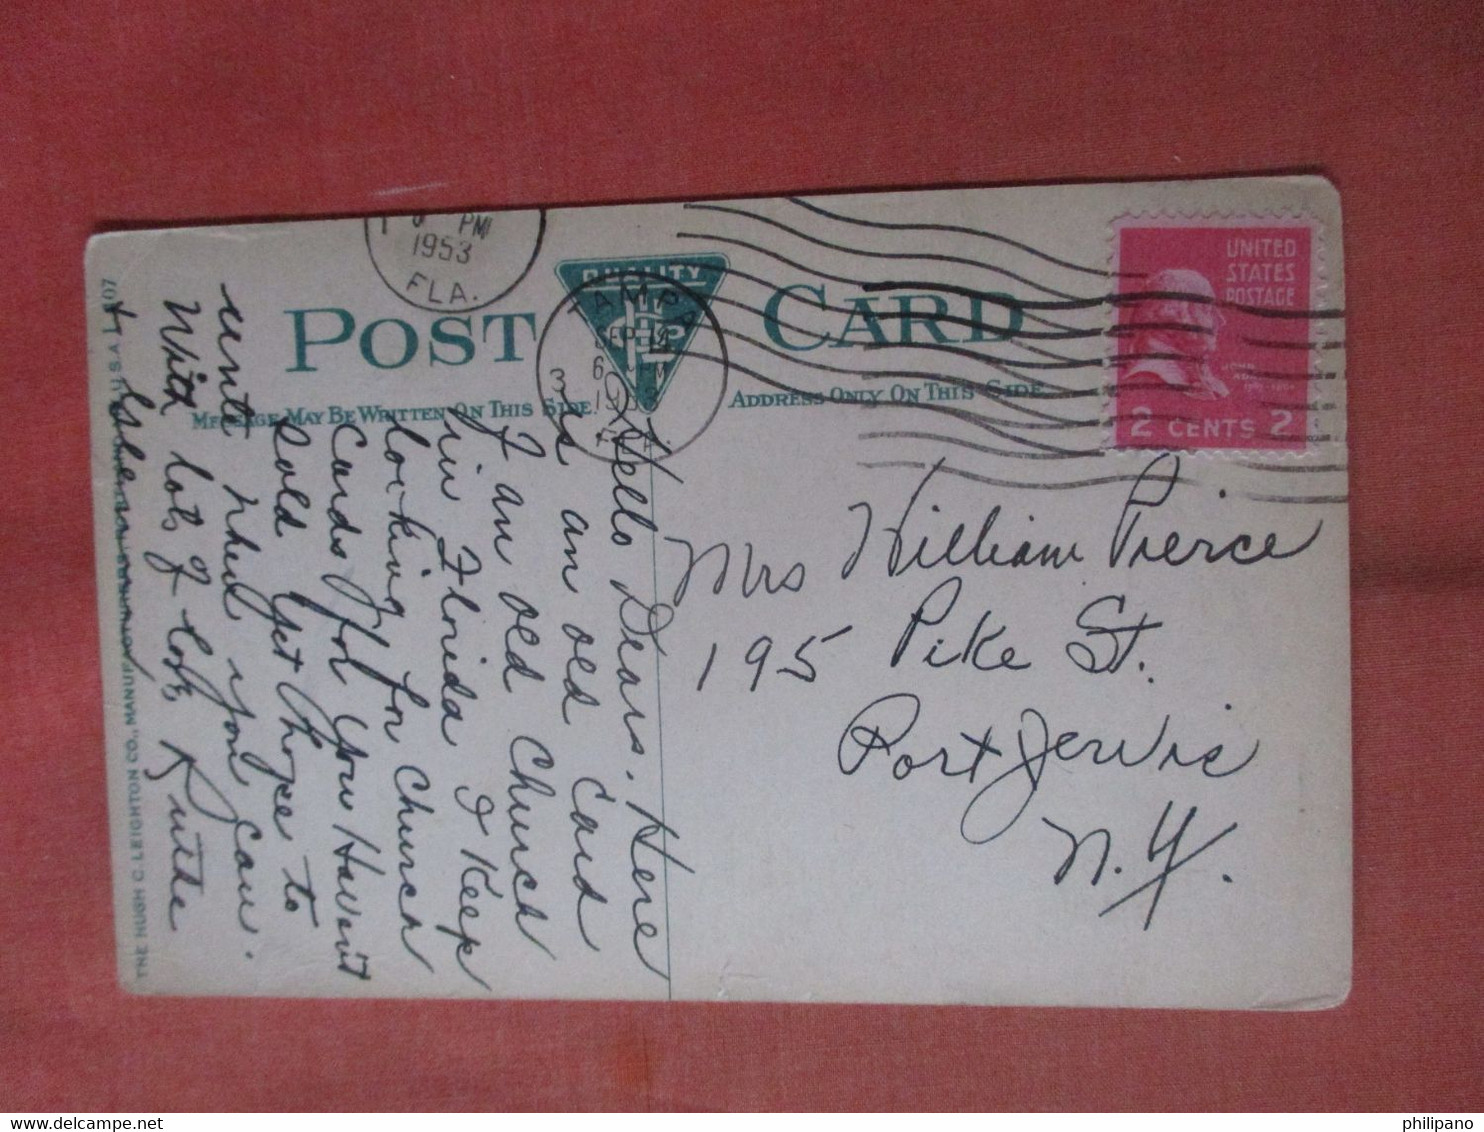 PM
1953
FLA.
QUALITY
TAMPA
SEP
1953
FLA
UNITED
STATES
POSTAGE
2 CENTS 2
POST CARD
MESSAGE MAY BE WRITTEN ON THIS SIDE
ADDRESS ONLY ON THIS SIDE
Mrs William Pierce
195 Pike St.
Port Jervis
N.Y.
Hello Dears. Here
is an old Card
of an old Church
in Florida I Keep
looking for Church
Cards for you Haven't
Sold yet hope to
write when you can.
With lots of love Ruthe
THE HUGH C. LEIGHTON CO., MANUFACTURERS, PORTLAND, ME., U.S.A.
philipano